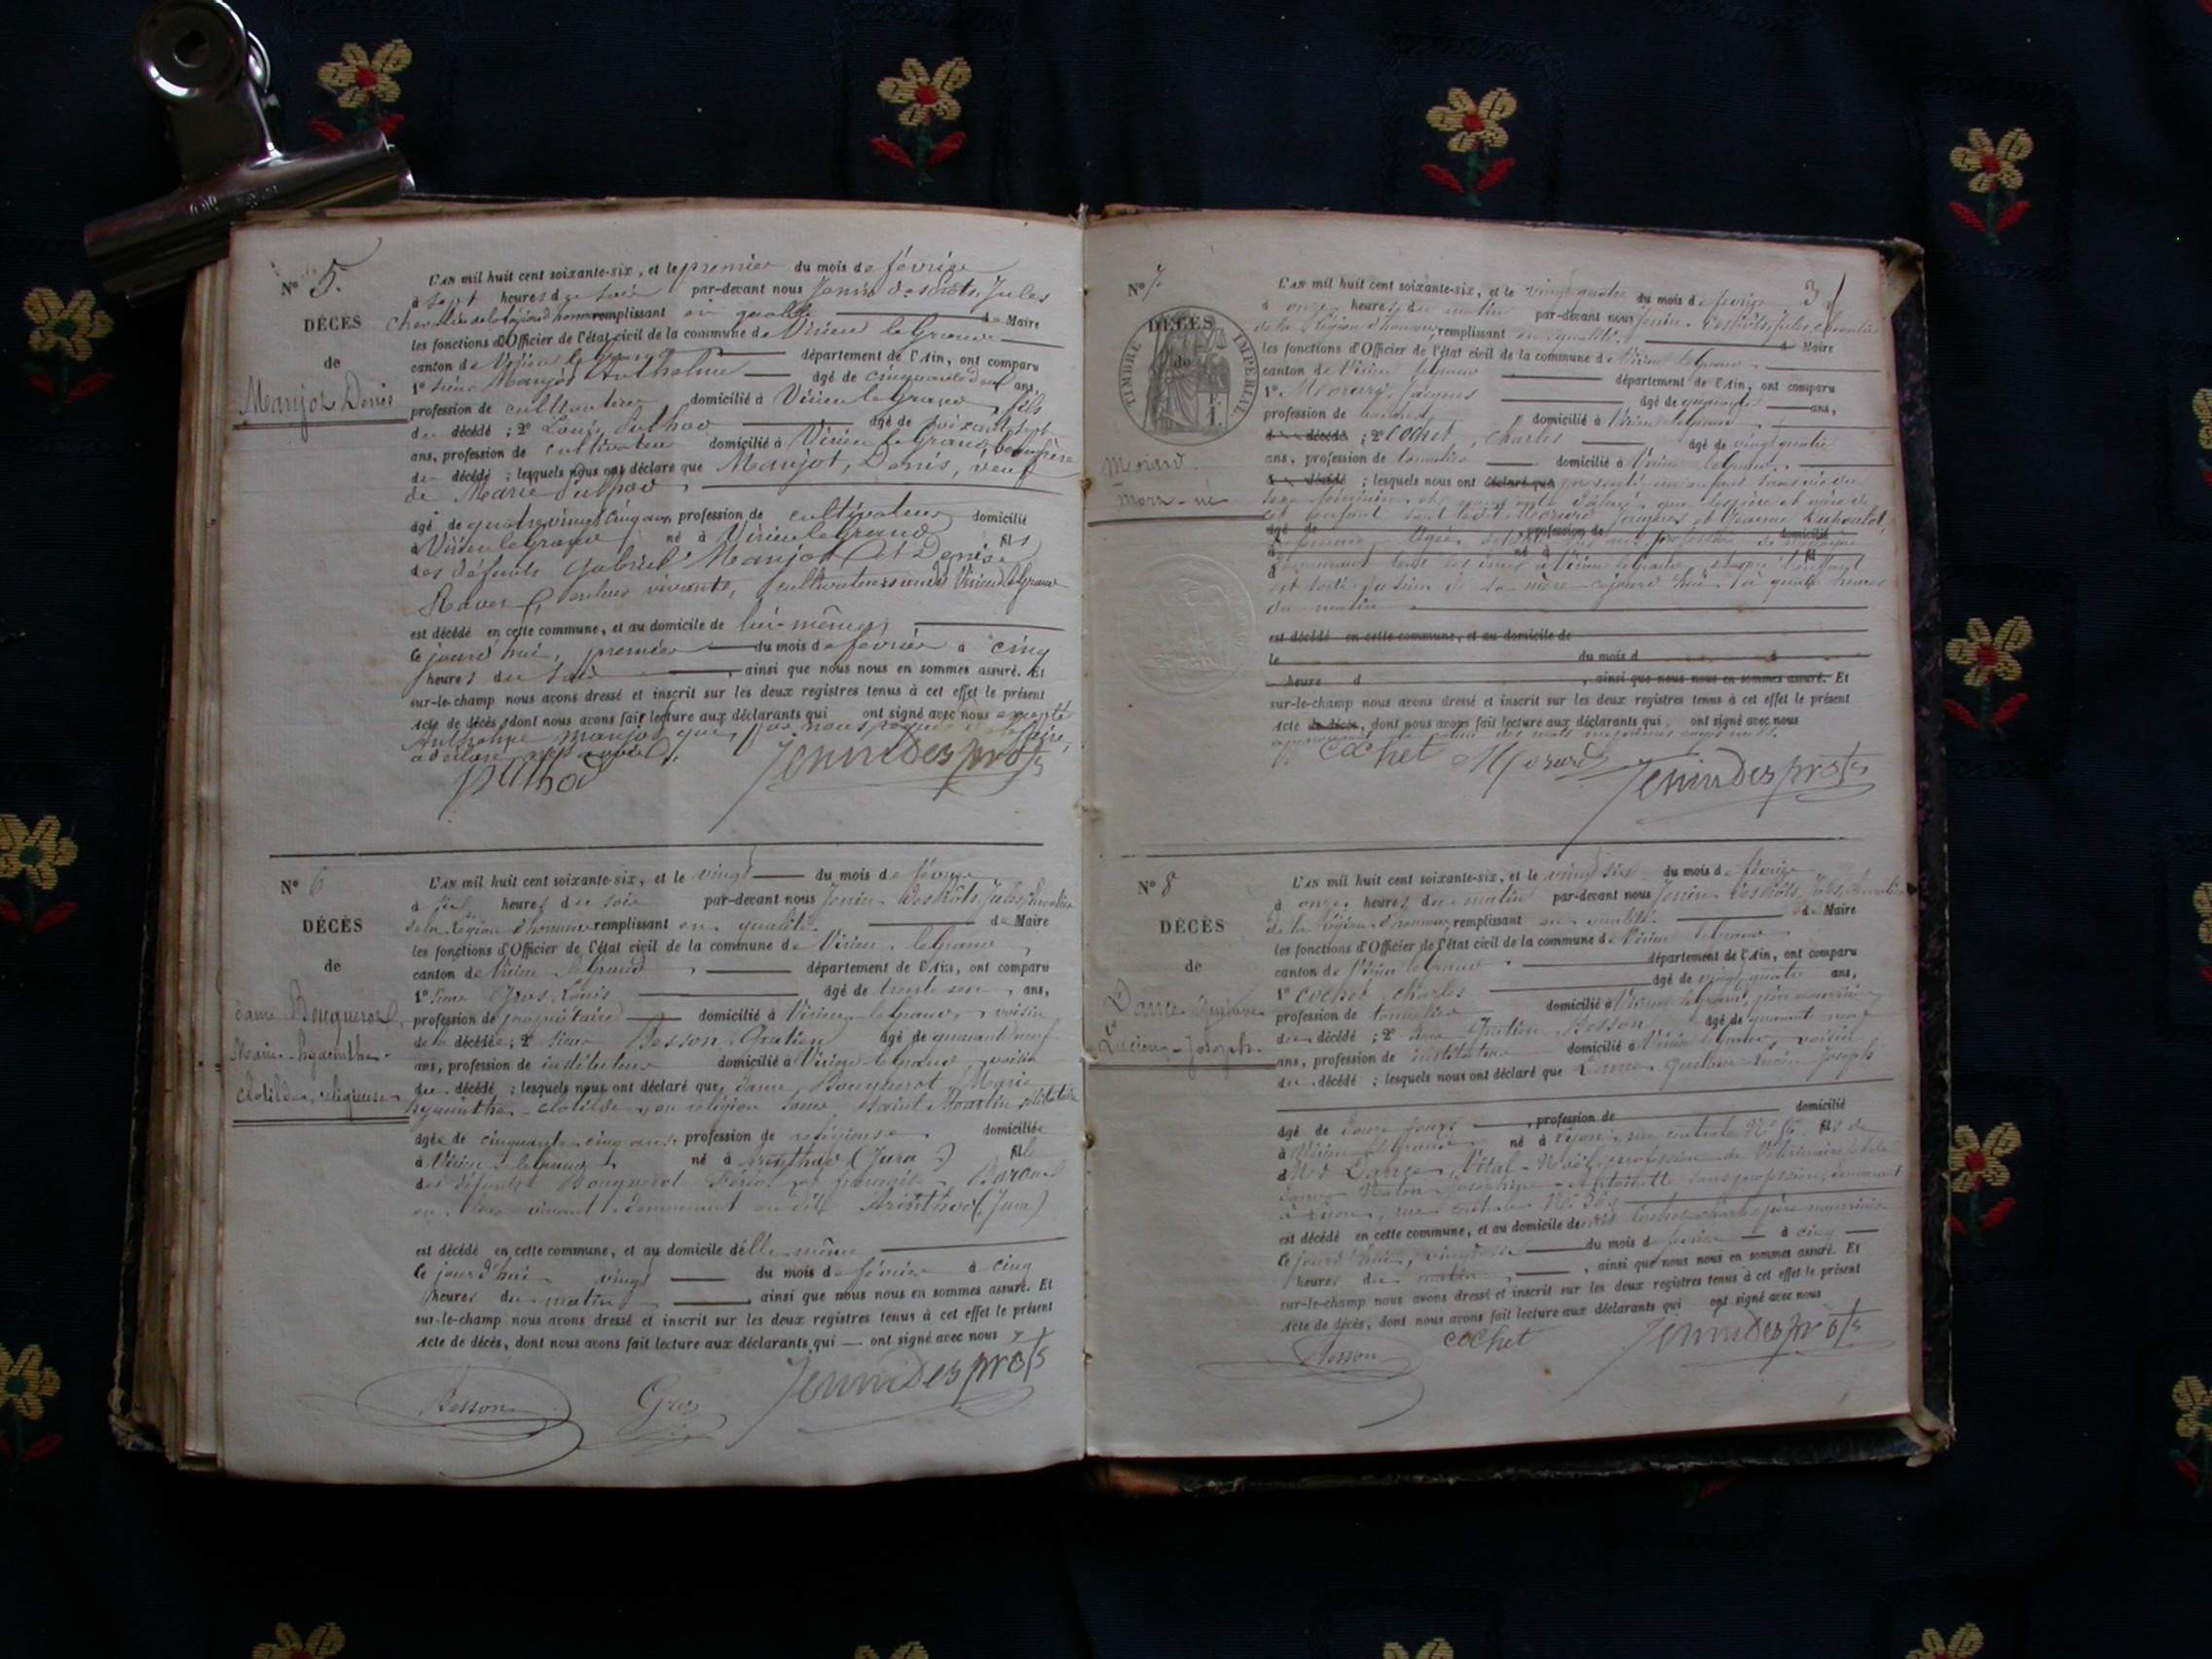 N° 5.
DÉCÈS
de
Marjot Denis
L'AN mil huit cent soixante-six, et le premier du mois de février
à sept heures du soir par-devant nous Jenin Desprôts, Jules
chevalier de la légion d'honneur remplissant en qualité de Maire
les fonctions d'Officier de l'état civil de la commune de Virieu le Grand
canton de Virieu le Grand département de l'Ain, ont comparu
1° sieur Marjot Anthelme âgé de cinquante deux ans,
profession de cultivateur domicilié à Virieu le Grand, fils
du décédé ; 2° Louis Julhod âgé de soixante sept
ans, profession de cultivateur domicilié à Virieu le Grand, beau frère
du décédé ; lesquels nous ont déclaré que Marjot, Denis, veuf
de Marie Julhod,
âgé de quatre vingt cinq ans, profession de cultivateur domicilié
à Virieu le grand, né à Virieu le Grand fils
des défunts Gabriel Marjot et Denise
Ravet, en leur vivant, cultivateurs Virieu le Grand
est décédé en cette commune, et au domicile de lui-même,
ce jourd'hui, premier du mois de février à cinq
heures du soir, ainsi que nous nous en sommes assuré. Et
sur-le-champ nous avons dressé et inscrit sur les deux registres tenus à cet effet le présent
Acte de décès, dont nous avons fait lecture aux déclarants qui ont signé avec nous excepté
Anthelme Marjot que, par nous requis de le faire,
a déclaré
Julhod JeninDesprôts
N° 6
DÉCÈS
de
dame Bouguerot,
Marie-hyacinthe-
clotilde, religieuse
L'AN mil huit cent soixante-six, et le vingt du mois de février
à six heures du soir par-devant nous Jenin Desprôts, Jules, chevalier
de la légion d'honneur remplissant en qualité de Maire
les fonctions d'Officier de l'état civil de la commune de Virieu le Grand,
canton de Virieu le Grand, département de l'Ain, ont comparu
1° sieur Gros Louis âgé de trente ans,
profession de propriétaire domicilié à Virieu le Grand, voisin
de la décédée ; 2° sieur Besson Gratien âgé de quarante neuf
ans, profession de instituteur domicilié à Virieu le Grand, voisin
du décédé ; lesquels nous ont déclaré que, dame, Bouguerot, Marie
hyacinthe-clotilde, en religion Saint Martin, célibataire
âgée de cinquante cinq ans, profession de religieuse, domiciliée
à Virieu le Grand, né à Arinthod (Jura) fille
des défunts Bouguerot et
en leur vivant, demeurant au dit Arinthod (Jura)
est décédé en cette commune, et au domicile d'elle même
ce jourd'hui vingt du mois de février à cinq
heures du matin, ainsi que nous nous en sommes assuré. Et
sur-le-champ nous avons dressé et inscrit sur les deux registres tenus à cet effet le présent
Acte de décès, dont nous avons fait lecture aux déclarants qui ont signé avec nous
Besson Gros JeninDesprôts
N° 7
3
DÉCÈS
de
TIMBRE IMPÉRIAL
Morard
mort-né
L'AN mil huit cent soixante-six, et le vingt quatre du mois de février
à onze heures du matin par-devant nous Jenin Desprôts, Jules, chevalier
de la légion d'honneur, remplissant en qualité de Maire
les fonctions d'Officier de l'état civil de la commune de Virieu le Grand
canton de Virieu le grand département de l'Ain, ont comparu
1° Morard, Jacques âgé de quarante ans,
profession de domicilié à Virieu le Grand,
du décédé ; 2° Cochet, Charles âgé de vingt quatre
ans, profession de tonnelier domicilié à Virieu le Grand,
du décédé ; lesquels nous ont déclaré que présenté un enfant sans vie du
sexe féminin, et nous ont déclaré que les père et mère de
cet enfant sont ledit Morard Jacques et
âgé de profession de domicilié
à né à fil
demeurant tous les deux à Virieu le Grand, et que l'enfant
est sorti du sein de sa mère cejourd'hui à quatre heures
du matin
est décédé en cette commune, et au domicile de
le du mois d à
heure d, ainsi que nous nous en sommes assuré. Et
sur-le-champ nous avons dressé et inscrit sur les deux registres tenus à cet effet le présent
Acte de décès, dont nous avons fait lecture aux déclarants qui, ont signé avec nous
cochet Morard JeninDesprôts
N° 8
DÉCÈS
de
Dance Gustave
Lucien-Joseph.
L'AN mil huit cent soixante-six, et le vingt six du mois de février
à onze heures du matin par-devant nous Jenin Desprôts, Jules, chevalier
de la légion d'honneur, remplissant en qualité de Maire
les fonctions d'Officier de l'état civil de la commune de Virieu le Grand
canton de Virieu le grand département de l'Ain, ont comparu
1° Cochet, Charles âgé de vingt quatre ans,
profession de tonnelier domicilié à Virieu le grand, père nourricier
du décédé ; 2° sieur Gratien Besson âgé de quarante neuf
ans, profession de instituteur domicilié à Virieu le grand, voisin
du décédé ; lesquels nous ont déclaré que Dance, Gustave Lucien Joseph
âgé de jours profession de domicilié
à Virieu le Grand né à Lyon, rue centrale N° 36 fils de
de Dance, Vital-Noël, profession de Vétérinaire et de
dame Joséphine-Antoinette sans profession, demeurant
à Lyon, rue centrale N° 36,
est décédé en cette commune, et au domicile de Cochet Charles père nourricier
ce jourd'hui, vingt six du mois de février à cinq
heures du matin, ainsi que nous nous en sommes assuré. Et
sur-le-champ nous avons dressé et inscrit sur les deux registres tenus à cet effet le présent
Acte de décès, dont nous avons fait lecture aux déclarants qui ont signé avec nous
Besson cochet JeninDesprôts